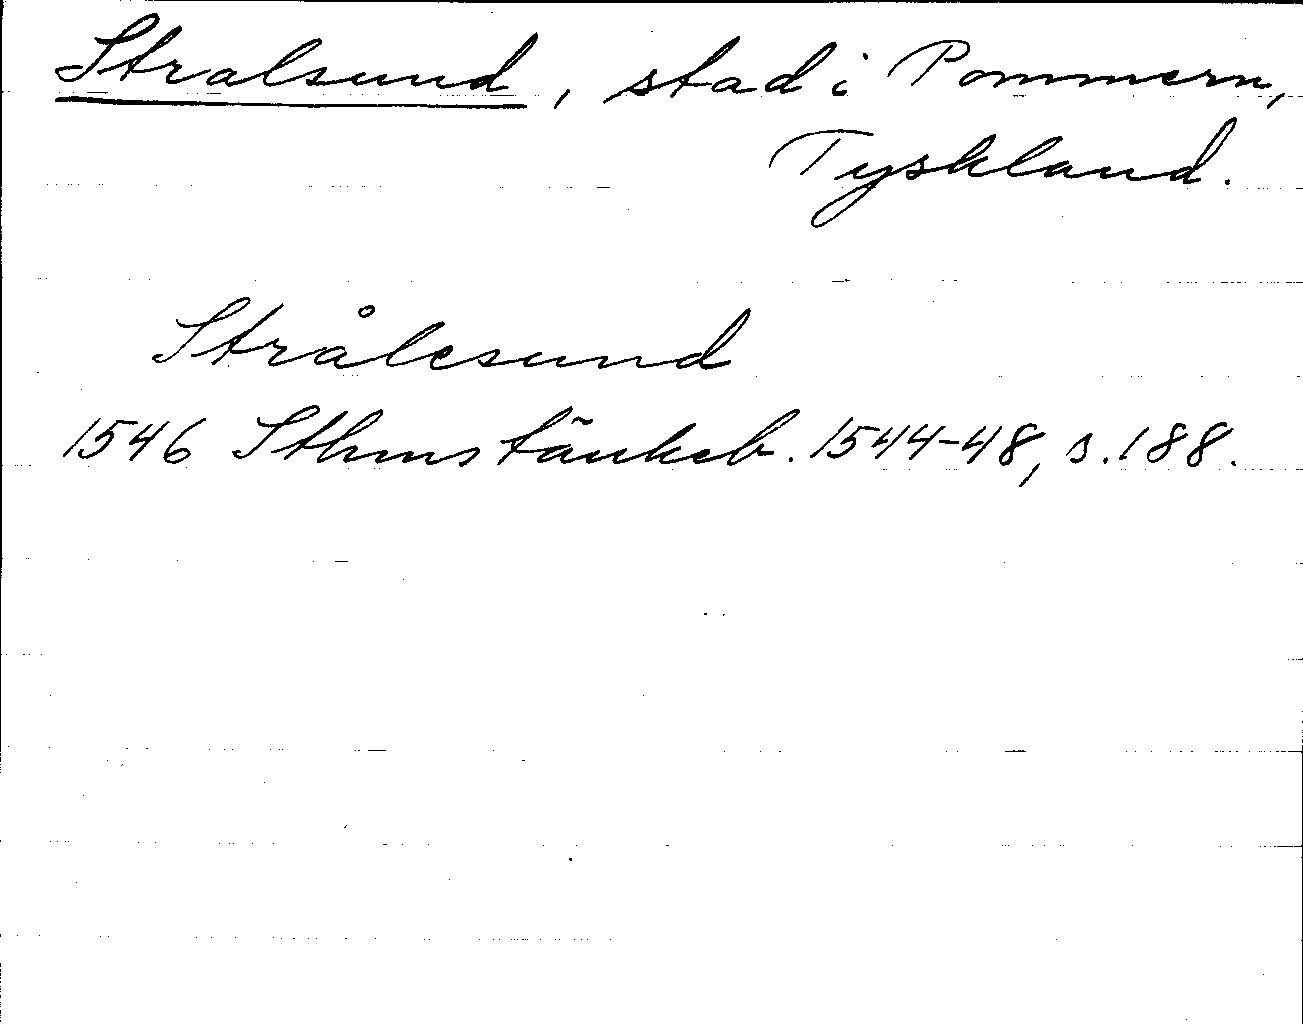 Stralsund, stad i Pommern,
Tyskland.
Strålesund
1546 Sthms tänkeb. 1544-48, s. 188.